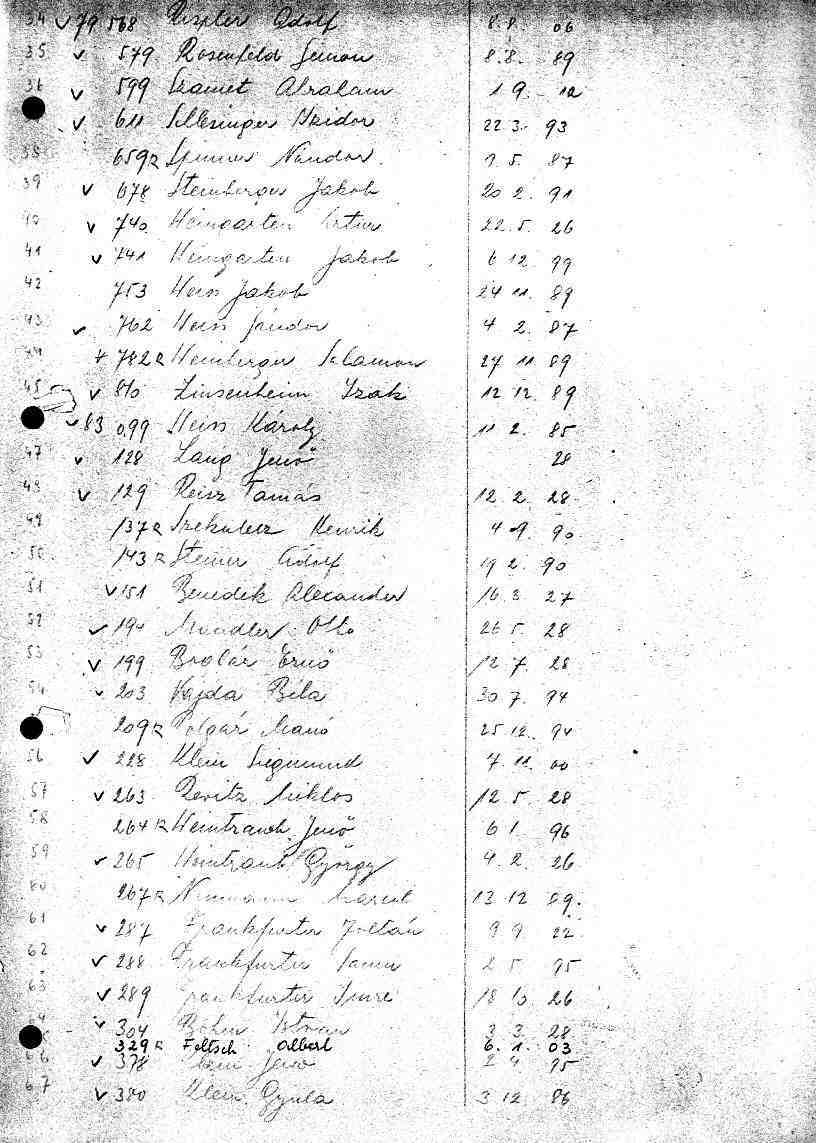 34 v 79 568 Adolf 8. 8. 06
35 v 579 Rosenfeld Simon 8. 8. 89
36 v 599 Szamet Abraham 1 9. 12
v 611 Schlesinger Izidor 22 3. 93
38 659 R Spinner Nándor 1. 5. 87
39 v 678 Steinberger Jakob 20 2. 91
40 v 740 Weingarten Artur 22. 5. 26
41 v 741 Weingarten Jakob 6 12. 99
42 753 Weiss Jakob 24 11. 89
43 v 762 Weiss Sándor 4 2. 87
44 782 R Weinberger Salamon 27 11 89
45 v 810 Zinsenheim Izak 12 12. 89
v 83 099 Weiss Károly 11 2. 85
47 v 128 Lang Jenő 28
48 v 129 Reisz Tamás 12. 2. 28
49 137 R Henrik 4 9. 90
50 143 R Steiner Adolf 19 2. 90
51 v 151 Benedek Alexander 16 3. 27
52 v 194 Mandler Otto 26 5. 28
53 v 199 Ernő 12 7. 28
54 v 203 Vajda Béla 30 7. 94
209 R Polgár Manó 25 12. 94
56 v 228 Klein Siegmund 7. 11. 00
57 v 263 Miklos 12. 5 28
58 264 R Weintraub Jenő 6 1. 96
59 v 265 Weintraub György 4. 2. 26
60 267 R Neumann 13 12 89.
61 v 287 Frankfurter Zoltán 9 9. 22
62 v 288 Frankfurter 2 5. 95
63 v 289 Frankfurter Imre 18 10. 26
64 v 304 Böhm Istvan 3 3. 28
329 R Feltsch Albert 6. 1. 03
66 v 378 Jenő 2 4. 95
67 v 380 Klein Gyula 3 12. 86